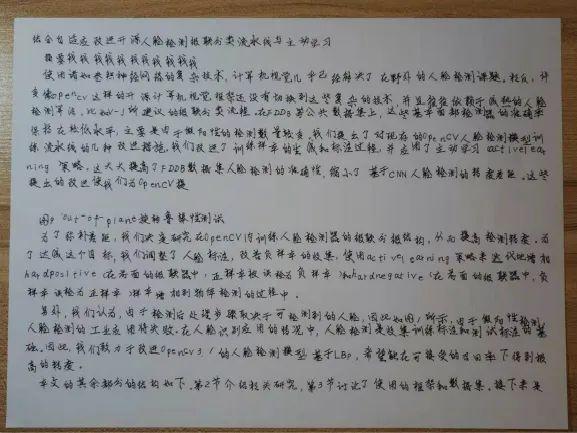 结合自适应改进开源人脸检测级联分类流水线与主动学习
摘要 我我我我我我我我我我
使用诸如卷积神经网络的复杂技术，计算机视觉几乎已经解决了在野外的人脸检测课题，相反，许
多像opencv这样的开源计算机视觉框架还没有切换到这些复杂的技术，并且往往依赖于成熟的人脸
检测算法，比如v-J所建议的级联分类流程，在FDDB等公共数据集上，这些基本面部检测器的准确率
保持在较低水平，主要是由于假阳性的检测数量较多，我们提出了对现存的OpenCV人脸检测模型训
练流水线的几种改进措施，我们改进了训练样本的生成和标注过程，并应用了主动学习 activelear
ning 策略，这大大提高了FDDB数据集人脸检测的准确性，缩小了基于CNN人脸检测的精度差距。这些
提出的改进使我们为OpenCV提
图9 "out"-of-plant旋转鲁棒性测试
为了弥补差距，我们决定研究在OpenCV内训练人脸检测器的级联分级结构，分而提高检测精度。为
了达成这个目标，我们调整了人脸标注，改善负样本的收集，使用activelearning策略来迭代地增加
hardpositive（在前面的级联器中，正样本被误检为负样本）和hardnegative（在前面的级联器中，负
样本误检为正样本）样本增加到物体检测的过程中。
另外，我们认为，由于检测后处理步骤取决于可检测到的人脸，因此如图1所示，由于假阳性检测，
人脸检测的工业应用将失败。在人脸识别应用的情况中，人脸检测是收集训练标注和测试标注的基
础。因此，我们致力于改进OpenCV3.1的人脸检测模型 基于LBP，希望能在可接受的召回率下得到极
高的精度。
本文的其余部分的结构如下。第2节介绍相关研究，第3节讨论了使用的框架和数据集。接下来是